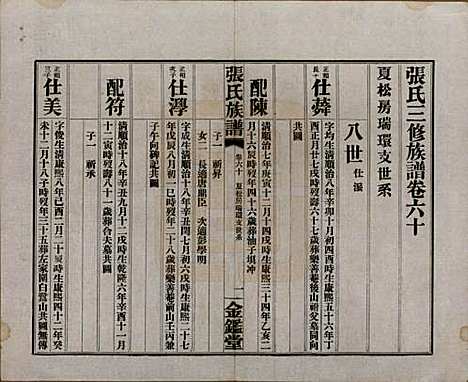 張氏三修族譜卷六十
夏松房瑞環支世系
八世 仕派
正朝長子
仕蕣
字均生清順治六年己丑十月初四酉時生康熙五十六年丁
酉正月廿七戌時歿壽六十九歲葬樂善菴後山祈父墓同向
共圖
配陳
清順治七年庚寅十二月十四戌時生康熙三十四年乙亥二
月十六辰時歿年四十六歲葬油子垻冲
子一 祈昇
女二 長適唐顯臣 次適彭學明
張氏族譜
卷六十 夏松房瑞環支世系
一
金鑑堂
正朝次子
仕渟
字 生清順治十八年辛丑閏七月初六戌時生康熙二十七
年戊辰八月初二巳時歿年二十八歲葬樂善菴前山壬丙兼
子午向碑記共圖
配符
清順治十八年辛丑九月十二戌時生乾隆六年辛酉十一月
十二寅時歿壽八十一歲葬合夫墓共圖
子一 祈承
正朝三子
仕美
字俊生清康熙八年己酉二月二十辰時生康熙四十二年癸
未十二月十八子時歿年三十五葬左家園白鷺山共圖無傳